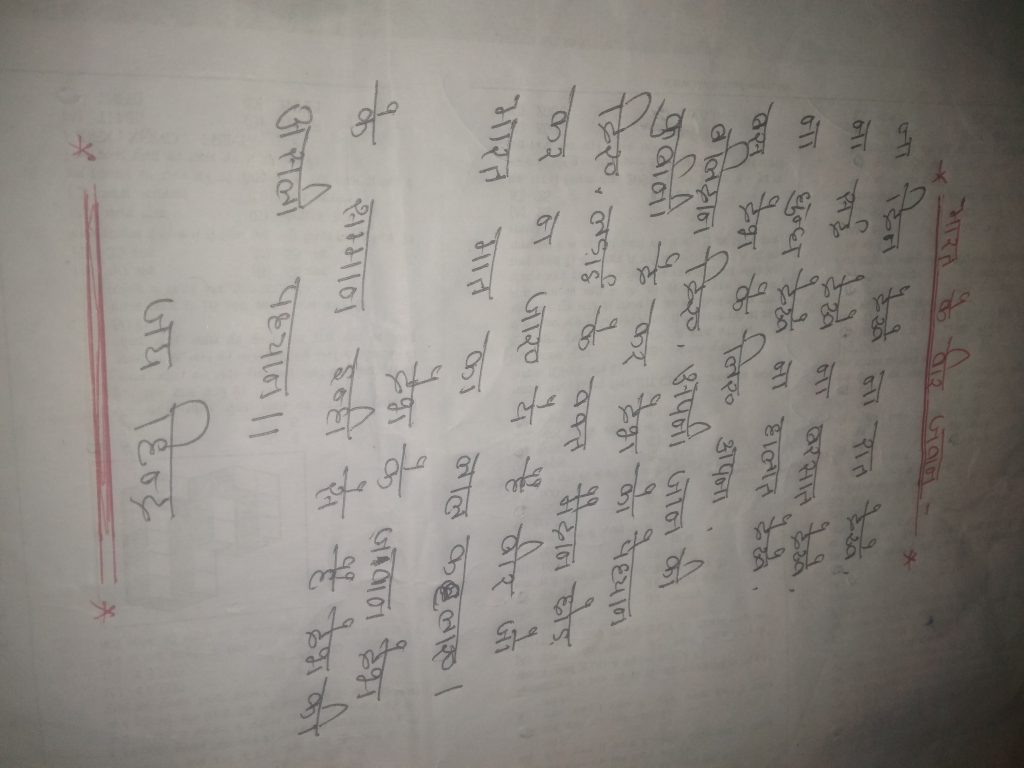 * भारत के वीर जवान - *
ना दिन देखे ना रात देखे
ना सर्द देखे ना बरसात देखे.
ना धुप देखे ना हालात देखे.
बस देश के लिए अपना
बलिदान दिए. अपनी जान की
कुर्बानी दे कर देश को पहचान
दिए. लड़ाई के वक्त मैदान छोड़
कर ना जाए ये है वीर जो
भारत माता का लाल कहलाए।
देश के जवान देश
के इन्ही से है देश की
पहचान॥
जय हिन्द